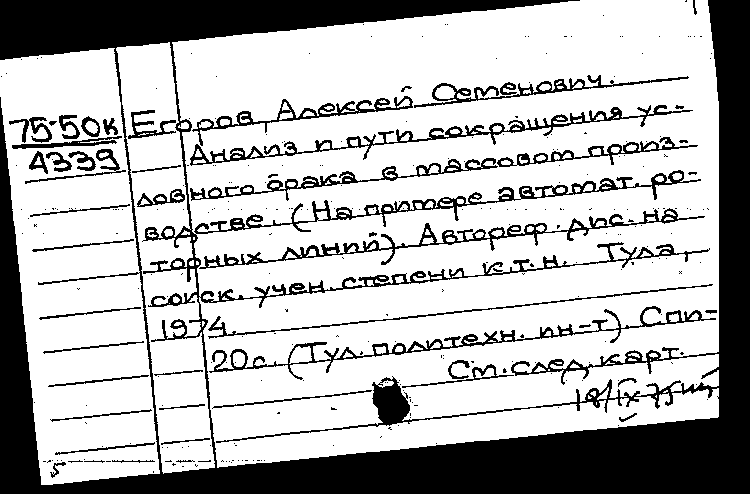 75-50к Егоров, Алексей Семенович.
4339 Анализ и пути сокращения ус-
ловного брака в массовом произ-
водстве. (На примере автомат. ро-
торных линий). Автореф. дис. на
соиск. учен. степени к.т.н. Тула,
1974.
20с. (Тул. политехн. ин-т). Спи-
См. след. карт.
18/IX-75
5